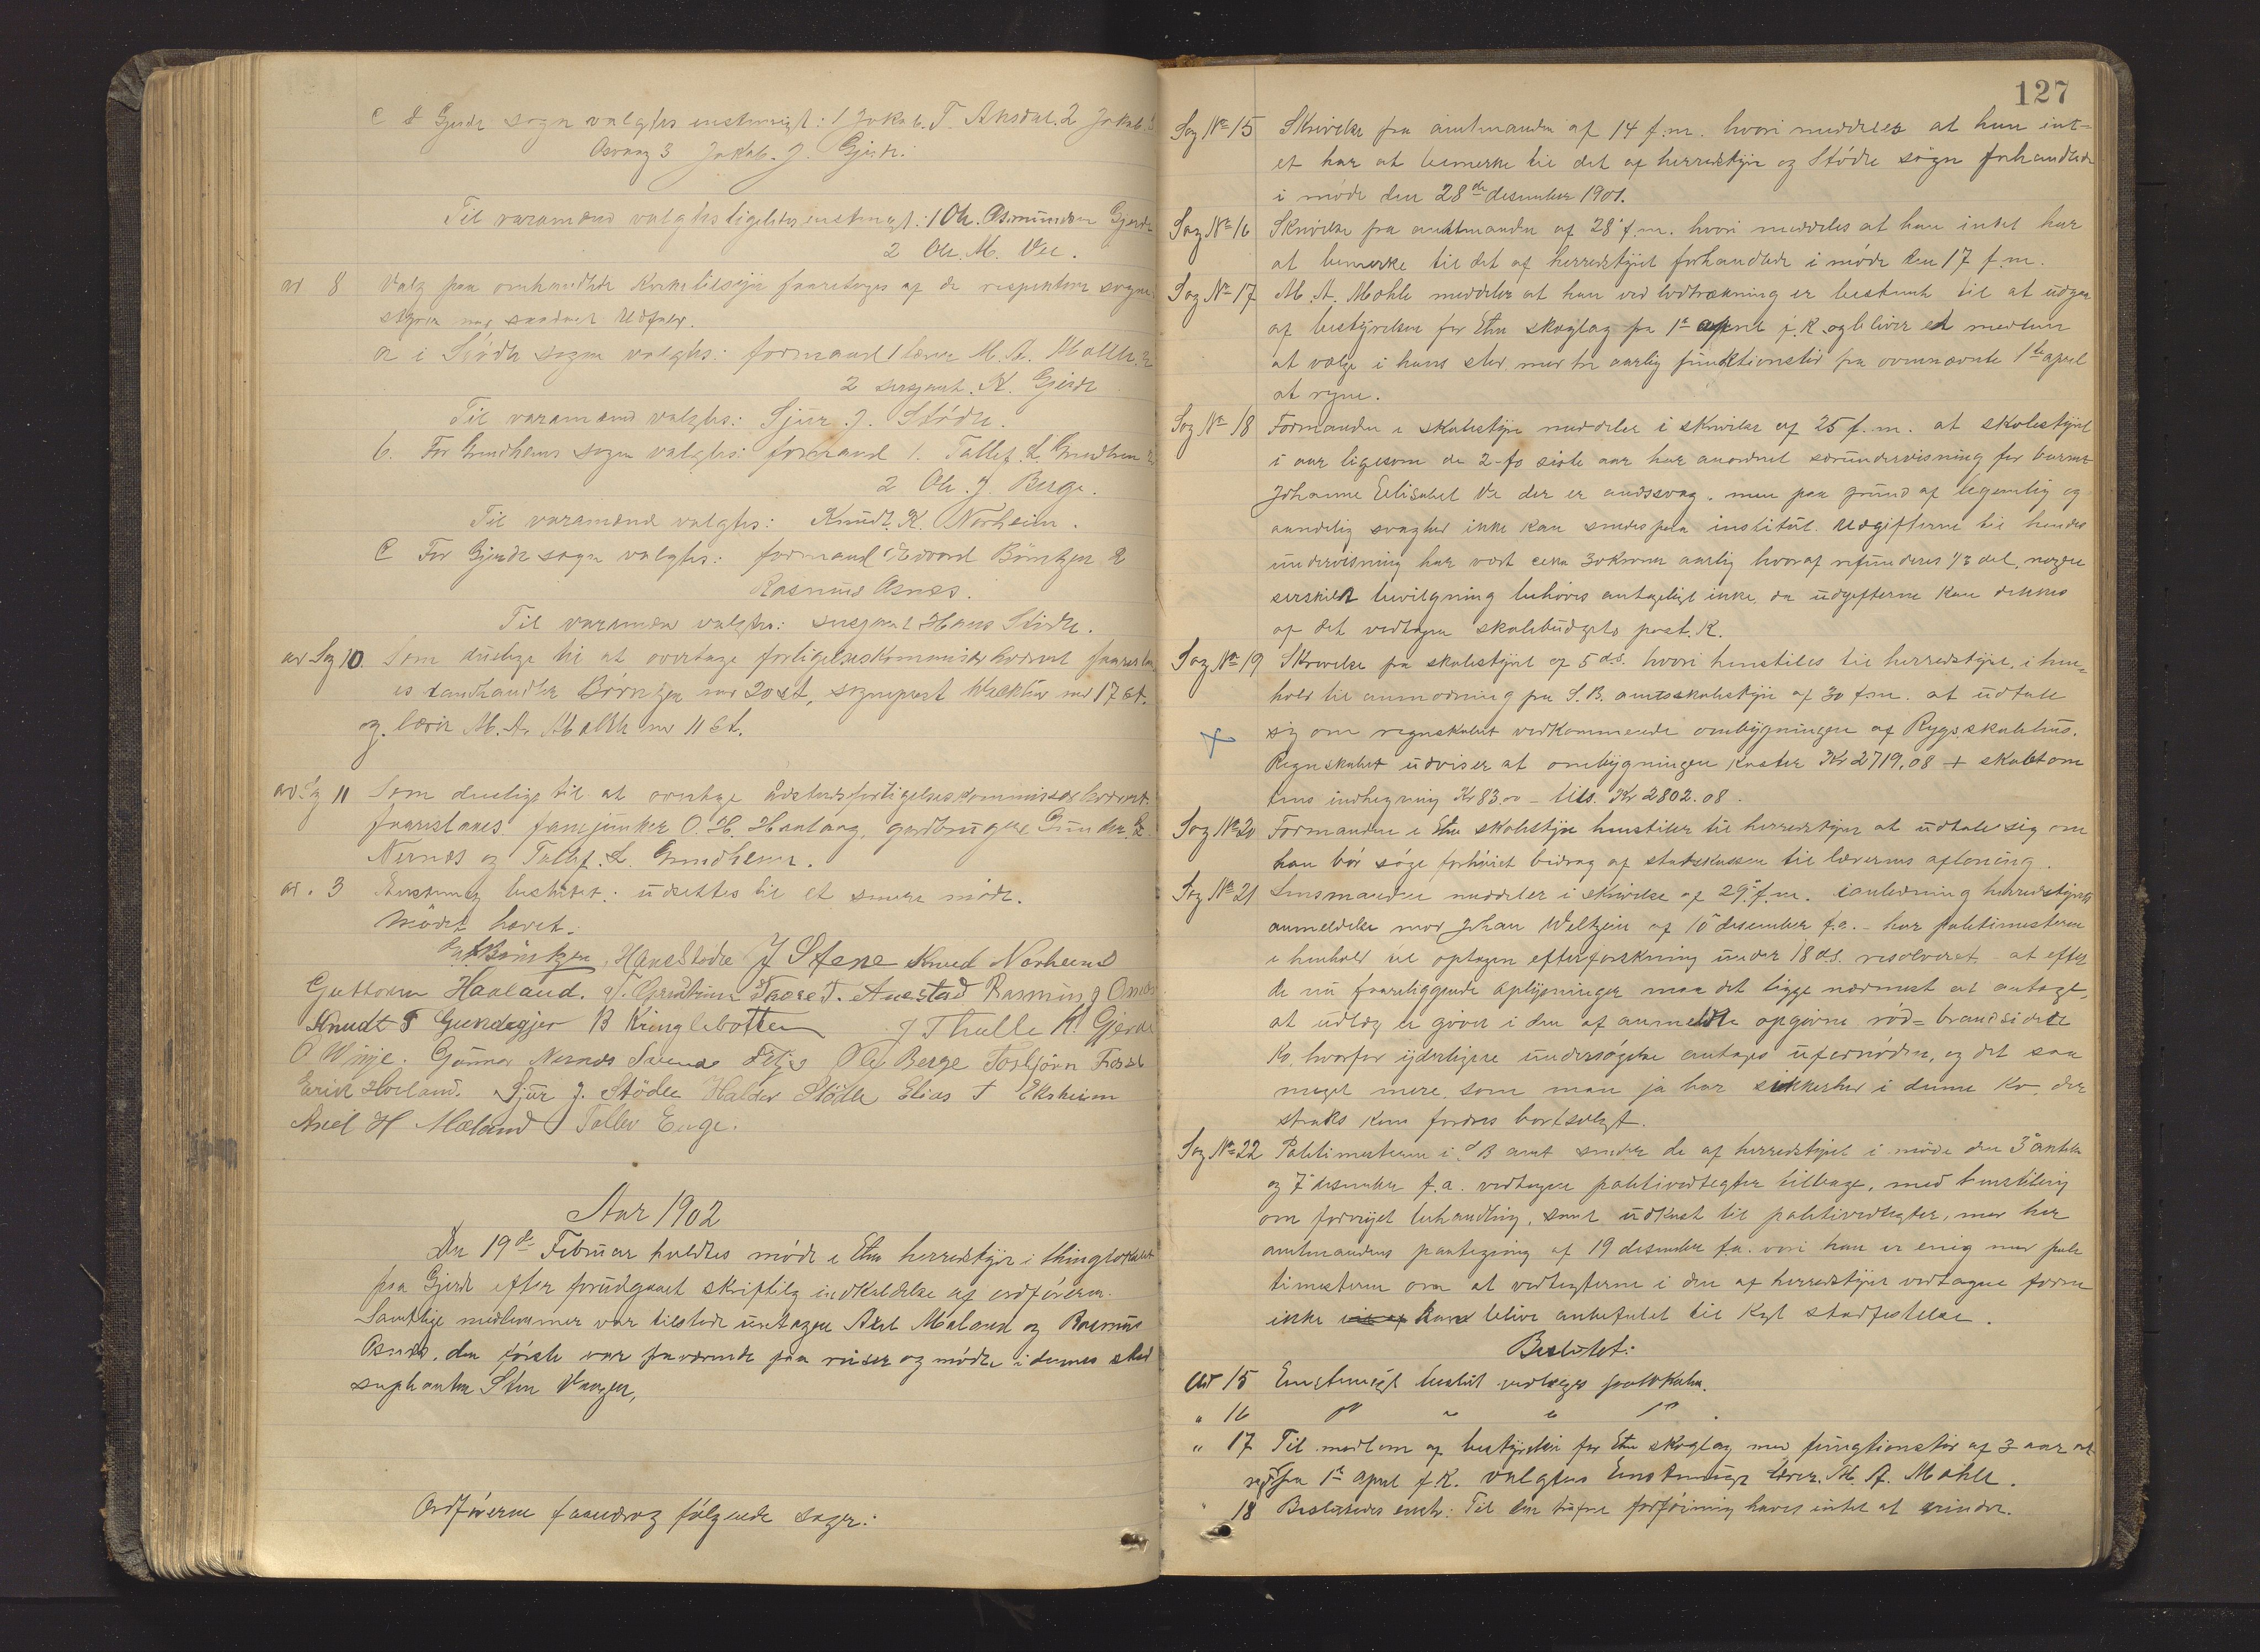 C I Gjerde sogn valgtes enstemigt: 1 Jakob. T. Aksdal. 2 Jakob. J
Osvaag 3 Jakob. J. Gjerde.
Til varamænd valgtes ligeledes enstemigt: 1 Ole. Osmundsen Gjerde
2 Ole. M. Vee.
ad 8 Valg paa omhandlede kirketilsyn foretoges af de respektive sogne
styrer med saadant Udfald.
a i Stødle sogn valgtes: formand 1 lærer M. A. Møhle.
2 sersjant. K. Gjerde
Til varamænd valgtes: Sjur. J. Stødle.
b. For Grindheims sogn valgtes: formand 1. Tollef. L. Grindheim
2 Ole. J. Berge.
Til varamænd valgtes: Knudt. K. Norheim.
C For Gjerde sogn valgtes: formand 1 Edvard Börntzen 2
Rasmus Osnes.
Til varamænd valgtes: sersjant Hans Stödle.
ad Sag 10. Som duelige til at overtage forligelseskommissærhvervet foresloa-
es landhandler Börntzen med 20 st, sogneprest med 17 st.
og lærer M. A. Møhle med 11 st.
ad Sag 11 Som duelige til at overtage forligelseskommissærhvervet
foreslaaes fanejunker O. H. Haaland, gardbruger Gunder. G.
Nernes og Tollef. L. Grindheim.
ad. 3 Enstemig besluttet: udsettes til et senere møde.
Mødet hævet.
Ed Börntzen, Hans Stødle J Stene Knud Norheim
Guttorm Haaland. T. Grindheim Taore T. Austad Rasmus J Osnes
Knudt T Gundegjer B Kringlebotten J Thulle K. Gjerde
O Winje. Gunnar Nernes Svend Fitje Ole Berge Torbjørn Frette
Eerik Hoeland. Sjur J. Stödle Haldor Stödle Elias T Eksheim
Axel H Mæland Tollev Enge.
Aar 1902
Den 19de Februar holdtes møde i Etne herredstyre i thinglokalet
paa Gjerde efter forudgaaet skriftlig indkaldelse af ordføreren.
Samtlige medlemmer var tilstede undtagen Axel Mæland og Rasmus
Osnes. den første var fraværende paa reiser og mødte i dennes sted
suplanten Sten Haugen,
Ordføreren foredrog følgende sager:
127
Sag No 15 Skrivelse fra amtmanden af 14 f.m. hvori meddeles at han int-
et har at bemerke til det af herredstyre og Stødle sogn forhandlede
i møde den 28de desember 1901.
Sag No 16 Skrivelse fra amtmanden af 28 f.m. hvori meddeles at han intet har
at bemerke til det af herredstyret forhandlede i møde den 17 f.m.
Sag No 17 M. A. Møhle meddeler at han ved lodtrækning er bestemt til at udgaa
af bestyrelsen for Etne skoglag fra 1ste april f. K. og bliver et medlem
at vælge i hans sted med tre aarlig funktionstid fra ovennævnte 1ste april
at regne.
Sag No 18 Formanden i skolestyre meddeler i skrivelse af 25 f.m. at skolestyret
i aar ligesom de 2-to siste aar har anordnet særundervisning for barnet
Johanne Eelisabet Ve der er andssvag. men paa grund af legemlig og
aandelig svaghed ikke kan sendes paa institut. Udgifterne til hendes
undervisning har vært cirka 30 kroner aarlig hvoraf refunderes 1/3 del, nogen
serskildt bevilgning behøves antageligt ikke, da udgifterne kan dekkes
af det vedtagne skolebudgets post. K.
Sag No 19 Skrivelse fra skolestyret af 5 d.s. hvori henstilles til herredstyret, i hen-
hold til anmodning fra S. B. amtsskolestyre af 30 f.m. at udtale
sig om regnskabet vedkommende ombygningen af Rygs skolehus.
Regnskabet udviser at ombygningen koster Kr 2719,08 + skoletom
tens indhegning Kr 83.00 - tils. Kr 2802.08.
Sag No 20 Formanden i Etne skolestyre henstiller til herredstyret at udtale sig om
han bör søge forhøiet bidrag af statskassen til lærernes aflöning.
Sag No 21 Lensmanden meddeler i skrivelse af 29 f.m. i anledning herredstyrets
anmeldelse mod Johan Weltzein af 10 desember f.a. - har politimesteren
i henhold til optagen efterforskning under 18 d.s. resolveret at efter
de nu foreliggende oplysninger maa det ligge nærmest at antage,
at udlæg er giver i den af anmeldte opgivne rød-brandsidede
ko, hvorfor yderligere undersøgelse antages ufornøden, og det saa
meget mere som man jo har sikkerhed i denne ko, der
straks kan fordres bortsolgt.
Sag No 22 Politimesteren i S B amt sender de af herredstyret i møde den 3 oktbr
og 7 desember f.a. vedtagne politivedtegter tilbage, med henstilling
om fornyet behandling, samt udkast til politivedtegter, med her
amtmandens paategning af 19 desember f.a. vori han er enig med poli
timesteren om at vedtegterne i den af herredstyret vedtagne form
ikke kan blive anbefalet til Kgl stadfestelse.
Besluttet:
Ad 15 Enstemigt besluttet vedlægges protokolen.
" 16 " " " "
" 17 Til medlem af bestyrelsen for Etne skoglag med fungtionstid af 3 aar at
regne fra 1ste april f. K. valgtes Enstemmigt lærer M. A. Møhle.
" 18 Besluttedes enst: Til den trufne forføining haves intet at erindre.